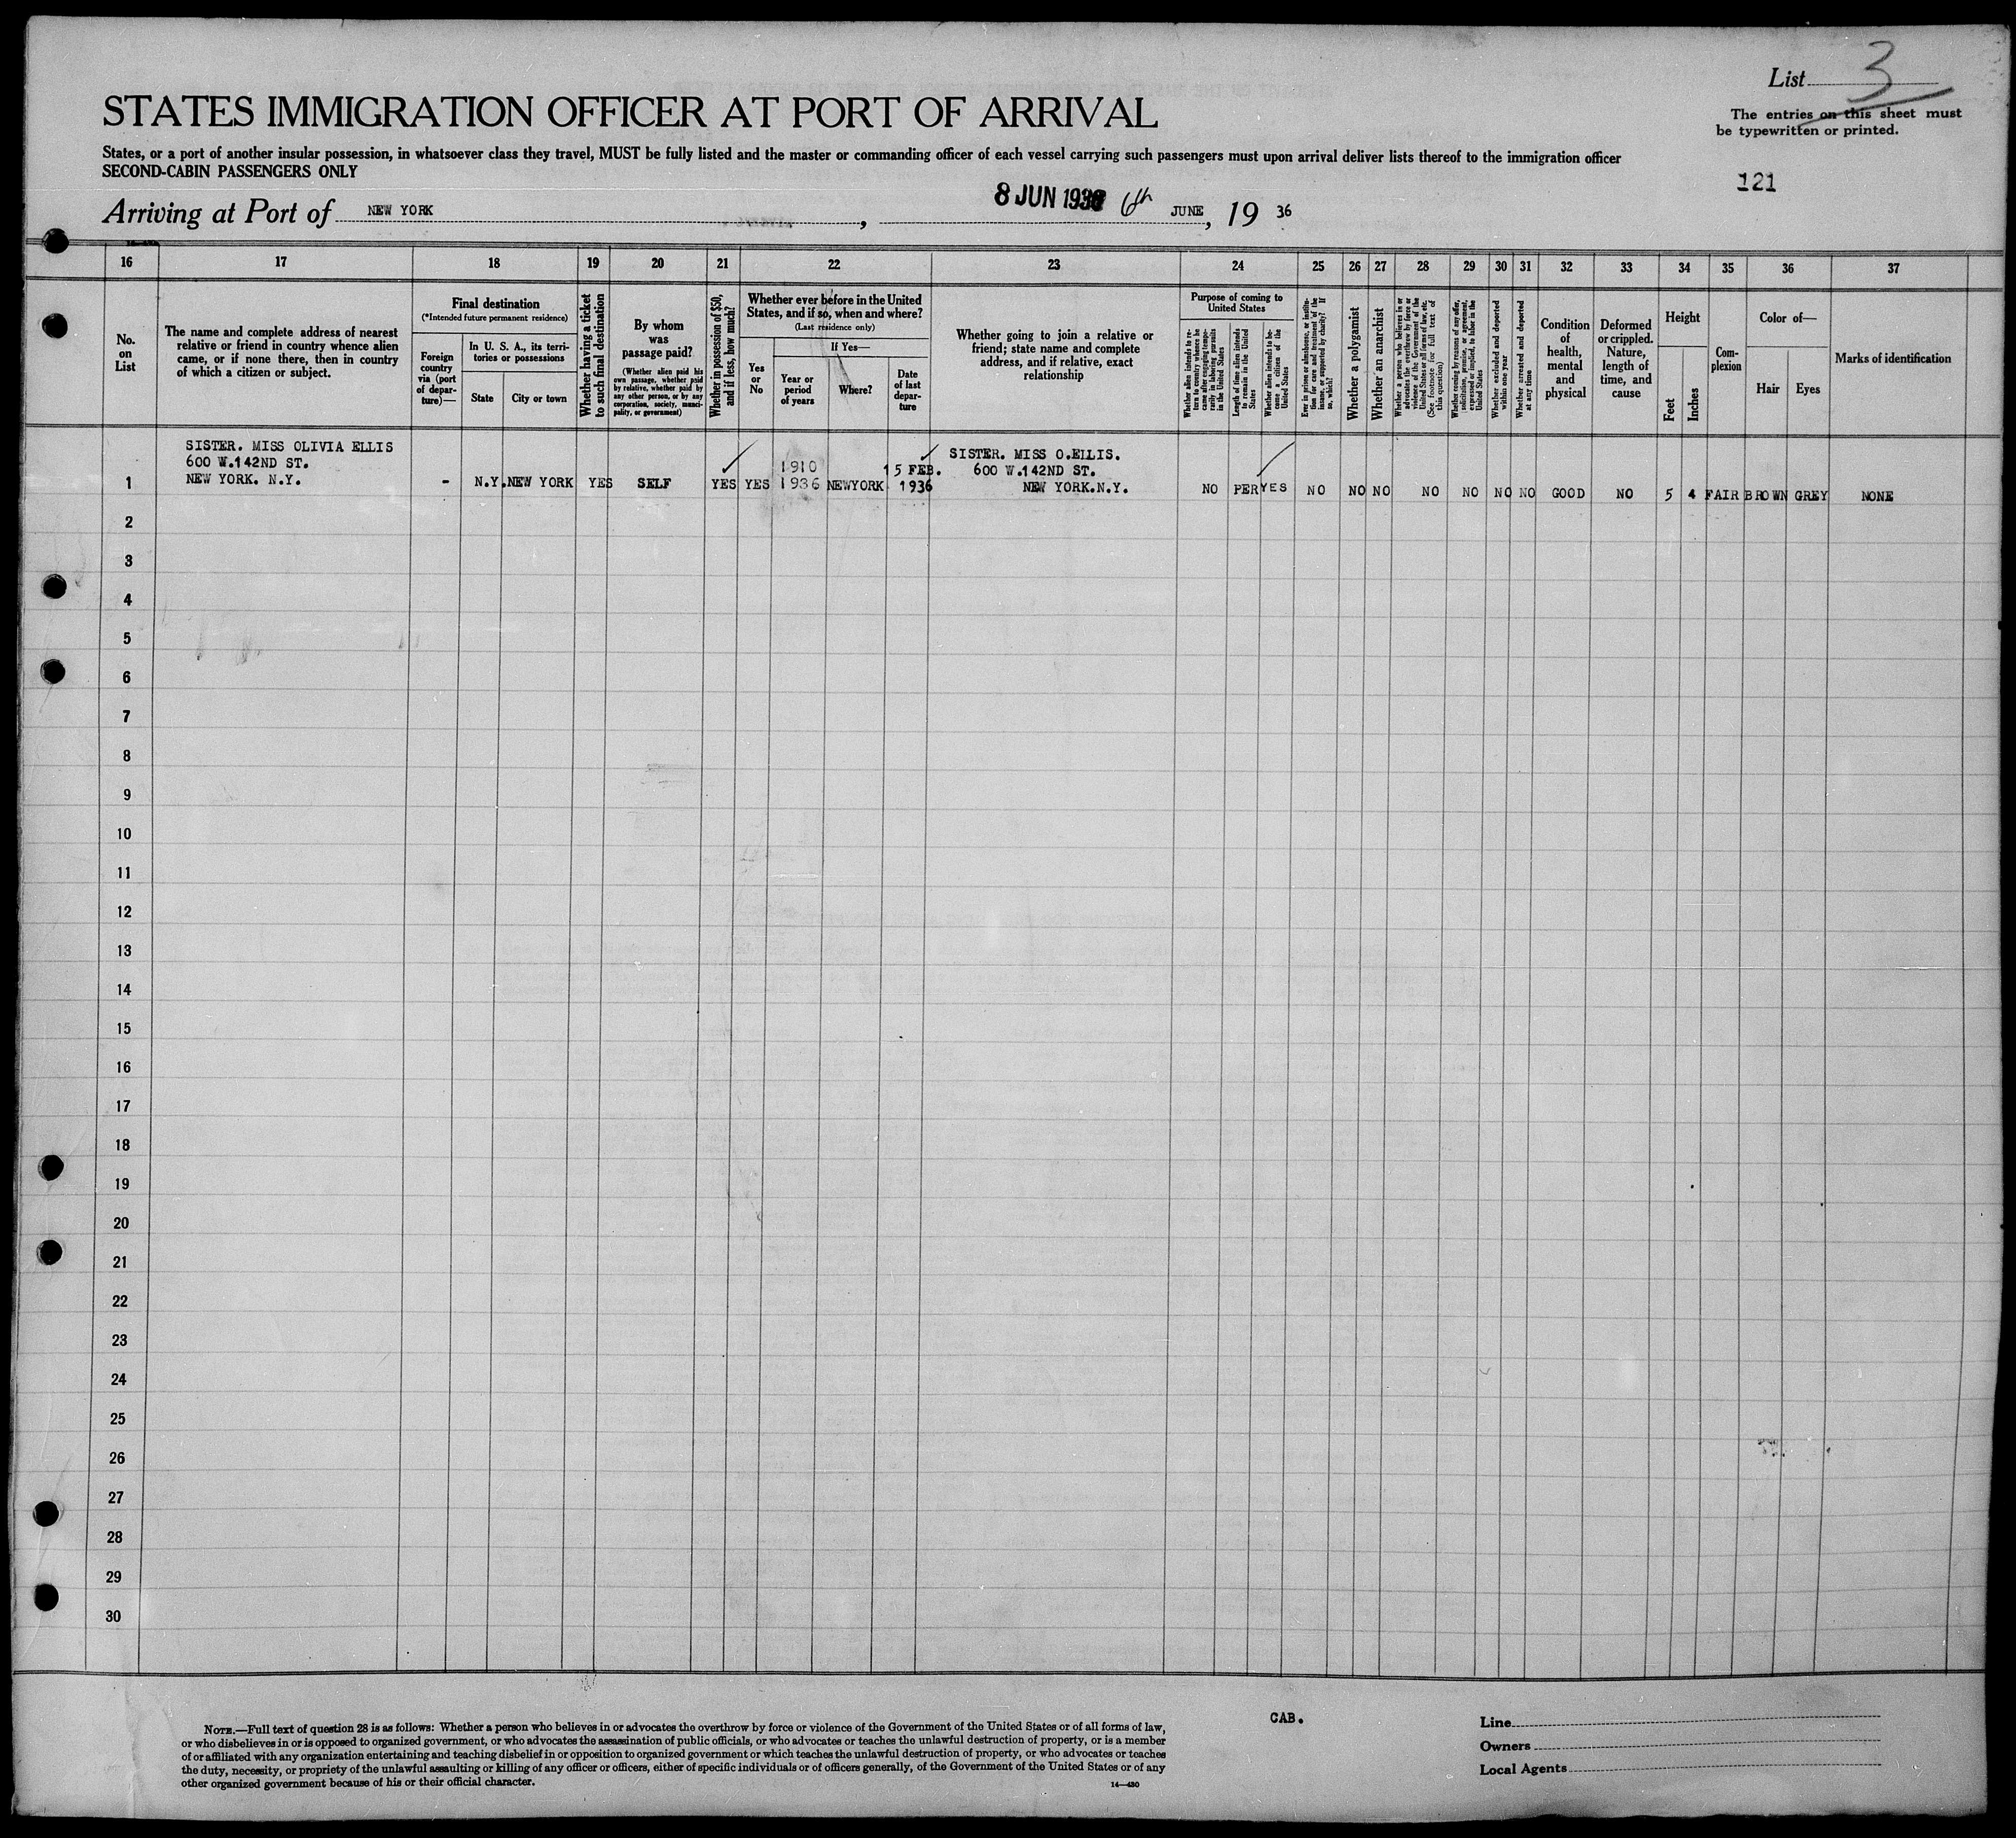 List 3
The entries on this sheet must
be typewritten or printed.
STATES IMMIGRATION OFFICER AT PORT OF ARRIVAL
States, or a port of another insular possession, in whatsoever class they travel, MUST be fully listed and the master or commanding officer of each vessel carrying such passengers must upon arrival deliver lists thereof to the immigration officer
SECOND-CABIN PASSENGERS ONLY
121
Arriving at Port of NEW YORK, 8 JUN 1936 6th JUNE, 19 36
16 17 18 19 20 21 22 23 24 25 26 27 28 29 30 31 32 33 34 35 36 37
No.
on
List
The name and complete address of nearest
relative or friend in country whence alien
came, or if none there, then in country
of which a citizen or subject.
Final destination
(*Intended future permanent residence)
Foreign
country
via (port
of depar-
ture)—
In U. S. A., its terri-
tories or possessions
State
City or town
Whether having a ticket
to such final destination
By whom
was
passage paid?
(Whether alien paid his
own passage, whether paid
by relative, whether paid by
any other person, or by any
corporation, society, munici-
pality, or government)
Whether in possession of $50,
and if less, how much?
Whether ever before in the United
States, and if so, when and where?
(Last residence only)
Yes
or
No
If Yes—
Year or
period
of years
Where?
Date
of last
depar-
ture
Whether going to join a relative or
friend; state name and complete
address, and if relative, exact
relationship
Purpose of coming to
United States
Whether alien intends to re-
turn to country whence he
came after engaging tempo-
rarily in laboring pursuits
in the United States
Length of time alien intends
to remain in the United
States
Whether alien intends to be-
come a citizen of the
United States
Ever in prison or almshouse, or institu-
tion for care and treatment of the
insane, or supported by charity? If
so, which?
Whether a polygamist
Whether an anarchist
Whether a person who believes in or
advocates the overthrow by force or
violence of the Government of the
United States or all forms of law, etc.
(See footnote for full text of
this question)
Whether coming by reasons of any offer,
solicitation, promise, or agreement,
expressed or implied, to labor in the
United States
Whether excluded and deported
within one year
Whether arrested and deported
at any time
Condition
of
health,
mental
and
physical
Deformed
or crippled.
Nature,
length of
time, and
cause
Height
Feet
Inches
Com-
plexion
Color of—
Hair
Eyes
Marks of identification
SISTER. MISS OLIVIA ELLIS
600 W.142ND ST.
NEW YORK. N.Y.
1 - N.Y. NEW YORK YES SELF YES YES 1910
1936 NEWYORK 15 FEB.
1936
SISTER. MISS O.ELLIS.
600 W.142ND ST.
NEW YORK.N.Y.
NO PER YES NO NO NO NO NO NO NO GOOD NO 5 4 FAIR BROWN GREY NONE
2
3
4
5
6
7
8
9
10
11
12
13
14
15
16
17
18
19
20
21
22
23
24
25
26
27
28
29
30
NOTE.—Full text of question 28 is as follows: Whether a person who believes in or advocates the overthrow by force or violence of the Government of the United States or of all forms of law,
or who disbelieves in or is opposed to organized government, or who advocates the assassination of public officials, or who advocates or teaches the unlawful destruction of property, or is a member
of or affiliated with any organization entertaining and teaching disbelief in or opposition to organized government or which teaches the unlawful destruction of property, or who advocates or teaches
the duty, necessity, or propriety of the unlawful assaulting or killing of any officer or officers, either of specific individuals or of officers generally, of the Government of the United States or of any
other organized government because of his or their official character.
14—430
CAB.
Line
Owners
Local Agents